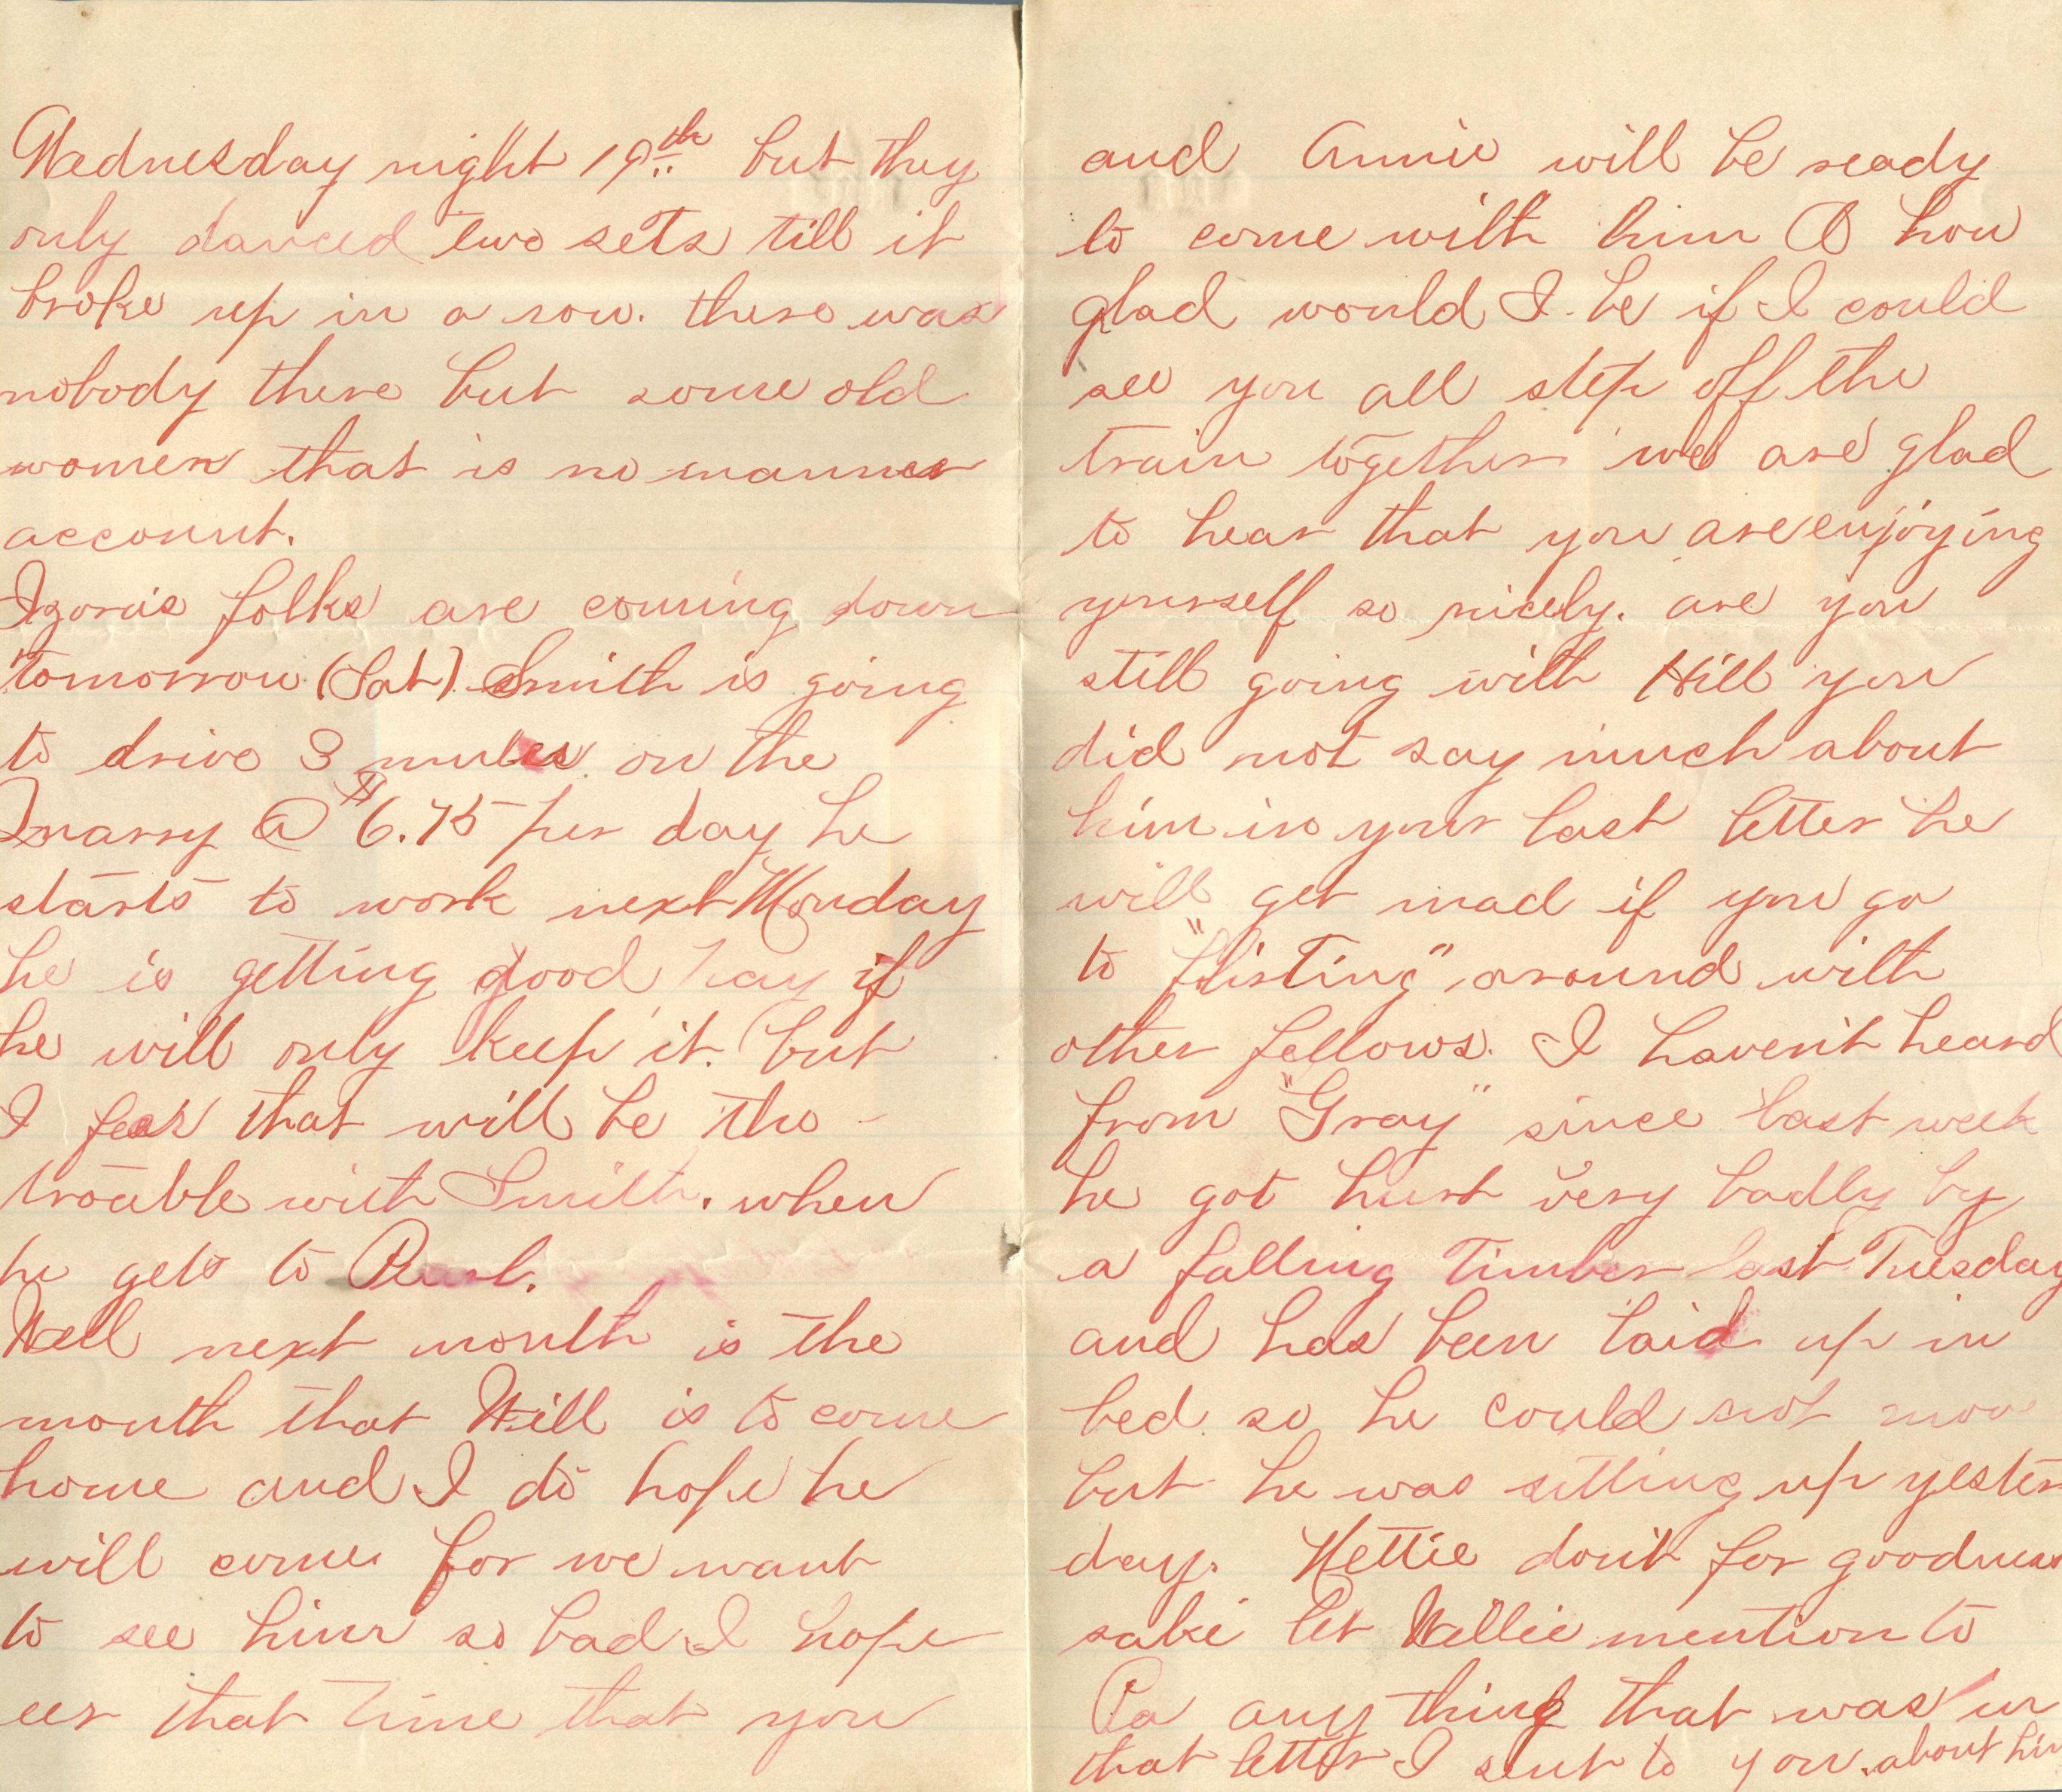 Wednesday night 19th but they
only danced two sets till it
broke up in a row. there was
nobody there but some old
women that is no manner
account.
Izora's folks are coming down
tomorrow (Sat) Smith is going
to drive 3 mules on the
Quarry @ $6.75 per day he
starts to work next Monday
he is getting good pay if
he will only keep it. but
I fear that will be the
trouble with Smith. when
he gets to Pearl.
Well next month is the
month that Will is to come
home and I do hope he
will come for we want
to see him so bad I hope
eer that time that you
and Annie will be ready
to come with him O how
glad would I be if I could
see you all step off the
train together we are glad
to hear that you are enjoying
yourself so nicely. are you
still going with Hill you
did not say much about
him in your last letter he
will get mad if you go
to "flirting" around with
other fellows. I haven't heard
from "Gray" since last week
he got hurt very badly by
a falling Timber last Tuesday
and has been laid up in
bed so he could not move
but he was sitting up yester
day. Nettie don't for goodness
sake let Willie mention to
Pa any thing that was in
that letter I sent to you. about him